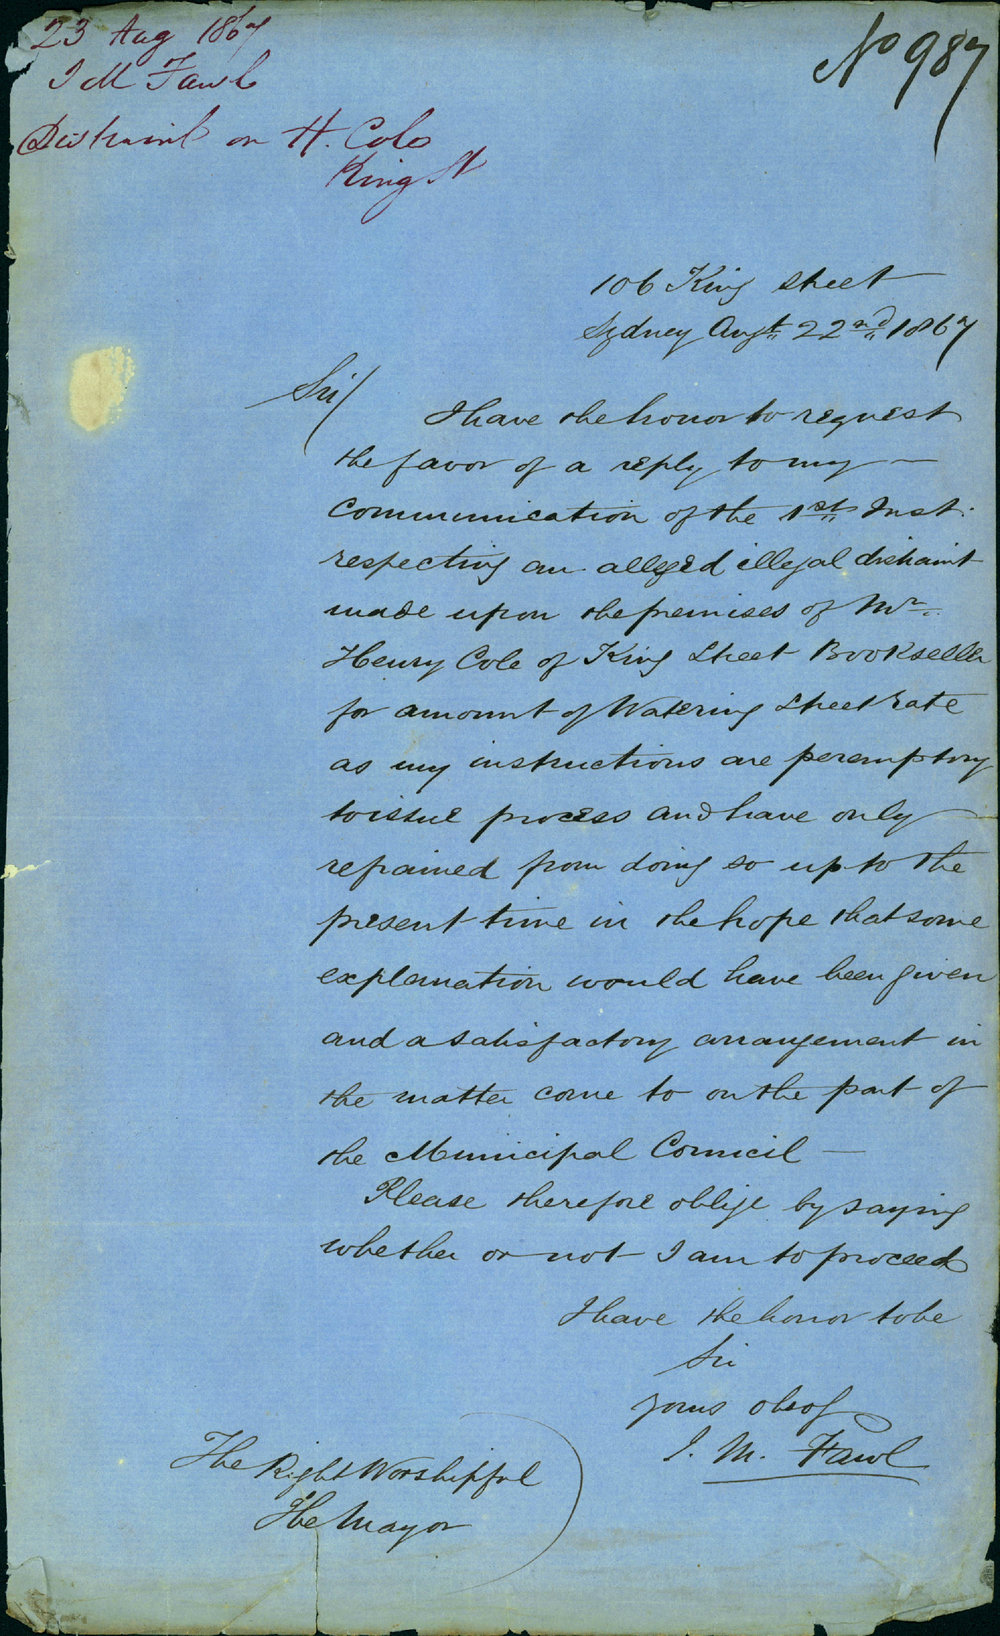 23 Aug 1867
J M Fawl
Distraint on H. Cole
King St
No 987
106 King Street
Sydney Augt 22nd 1867
Sir/
I have the honor to request
the favor of a reply to my —
communication of the 1st Inst:
respecting an alleged illegal distraint
made upon the premises of Mr.
Henry Cole of King Street Bookseller
for amount of Watering Street rate
as my instructions are peremptory
to issue process and have only
refrained from doing so up to the
present time in the hope that some
explanation would have been given
and a satisfactory arrangement in
the matter come to on the part of
the Municipal Council —
Please therefore oblige by saying
whether or not I am to proceed
I have the honor to be
Sir
yours
J. M. Fawl
The Right Worshipful
The Mayor